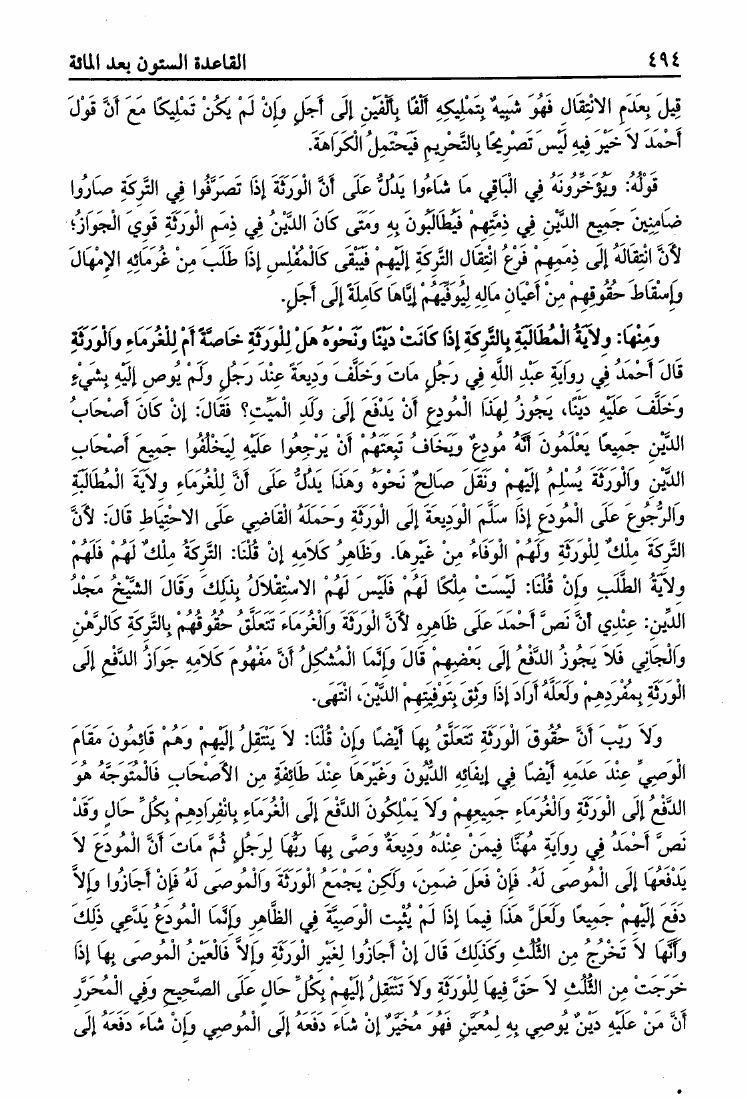 ٤٩٤ القاعدة الستون بعد المائة
قِيلَ بِعَدَمِ الانْتِقَالِ فَهُوَ شَبِيهٌ بِتَمْلِيكِهِ أَلْفًا بِأَلْفَيْنِ إلَى أَجَلٍ وَإِنْ لَمْ يَكُنْ تَمْلِيكًا مَعَ أَنَّ قَوْلَ
أَحْمَدَ لاَ خَيْرَ فِيهِ لَيْسَ تَصْرِيحًا بِالتَّحْرِيمِ فَيَحْتَمِلُ الْكَرَاهَةَ.
قَوْلُهُ: وَيُؤَخِّرُونَهُ فِي الْبَاقِي مَا شَاءُوا يَدُلُّ عَلَى أَنَّ الْوَرَثَةَ إذَا تَصَرَّفُوا فِي التَّرِكَةِ صَارُوا
ضَامِنِينَ جَمِيعِ الدَّيْنِ فِي ذِمَّتِهِمْ فَيُطَالَبُونَ بِهِ وَمَتَى كَانَ الدَّيْنُ فِي ذِمَمِ الْوَرَثَةِ قَوِيَ الْجَوَازُ؛
لأَنَّ انْتِقَالَهُ إلَى ذِمَمِهِمْ فَرْعُ انْتِقَالِ التَّرِكَةِ إلَيْهِمْ فَيَبْقَى كَالْمُفْلِسِ إذَا طَلَبَ مِنْ غُرَمَائِهِ الإِمْهَالَ
وَإِسْقَاطَ حُقُوقِهِمْ مِنْ أَعْيَانِ مَالِهِ لِيُوَفِّيَهُمْ إيَّاهَا كَامِلَةً إلَى أَجَلٍ.
وَمِنْهَا: وِلاَيَةُ الْمُطَالَبَةِ بِالتَّرِكَةِ إذَا كَانَتْ دَيْنًا وَنَحْوَهُ هَلْ لِلْوَرَثَةِ خَاصَّةً أَمْ لِلْغُرَمَاءِ وَالْوَرَثَةِ
قَالَ أَحْمَدُ فِي رِوَايَةِ عَبْدِ اللَّهِ فِي رَجُلٍ مَاتَ وَخَلَّفَ وَدِيعَةً عِنْدَ رَجُلٍ وَلَمْ يُوصِ إلَيْهِ بِشَيْءٍ
وَخَلَّفَ عَلَيْهِ دَيْنًا، يَجُوزُ لِهَذَا الْمُودَعِ أَنْ يَدْفَعَ إلَى وَلَدِ الْمَيِّتِ؟ فَقَالَ: إنْ كَانَ أَصْحَابُ
الدَّيْنِ جَمِيعًا يَعْلَمُونَ أَنَّهُ مُودَعٌ وَيَخَافُ تَبِعَتَهُمْ أَنْ يَرْجِعُوا عَلَيْهِ لِيَحْلِفُوا جَمِيعِ أَصْحَابِ
الدَّيْنِ وَالْوَرَثَةَ يُسْلِمُ إلَيْهِمْ وَنَقَلَ صَالِحٌ نَحْوَهُ وَهَذَا يَدُلُّ عَلَى أَنَّ لِلْغُرَمَاءِ وِلاَيَةَ الْمُطَالَبَةِ
وَالرُّجُوعَ عَلَى الْمُودَعِ إذَا سَلَّمَ الْوَدِيعَةَ إلَى الْوَرَثَةِ وَحَمَلَهُ الْقَاضِي عَلَى الاحْتِيَاطِ قَالَ: لأَنَّ
التَّرِكَةَ مِلْكٌ لِلْوَرَثَةِ وَلَهُمْ الْوَفَاءُ مِنْ غَيْرِهَا. وَظَاهِرُ كَلاَمِهِ إنْ قُلْنَا: التَّرِكَةُ مِلْكٌ لَهُمْ فَلَهُمْ
وِلاَيَةُ الطَّلَبِ وَإِنْ قُلْنَا: لَيْسَتْ مِلْكًا لَهُمْ فَلَيْسَ لَهُمْ الاسْتِقْلاَلُ بِذَلِكَ وَقَالَ الشَّيْخُ مَجْدُ
الدِّينِ: عِنْدِي أَنَّ نَصَّ أَحْمَدَ عَلَى ظَاهِرِهِ لأَنَّ الْوَرَثَةَ وَالْغُرَمَاءَ تَتَعَلَّقُ حُقُوقُهُمْ بِالتَّرِكَةِ كَالرَّهْنِ
وَالْجَانِي فَلاَ يَجُوزُ الدَّفْعُ إلَى بَعْضِهِمْ قَالَ وَإِنَّمَا الْمُشْكِلُ أَنَّ مَفْهُومَ كَلاَمِهِ جَوَازُ الدَّفْعِ إلَى
الْوَرَثَةِ بِمُفْرَدِهِمْ وَلَعَلَّهُ أَرَادَ إذَا وَثِقَ بِتَوْفِيَتِهِمْ الدَّيْنَ، انْتَهَى.
وَلاَ رَيْبَ أَنَّ حُقُوقَ الْوَرَثَةِ تَتَعَلَّقُ بِهَا أَيْضًا وَإِنْ قُلْنَا: لاَ يَنْتَقِلُ إلَيْهِمْ وَهُمْ قَائِمُونَ مَقَامَ
الْوَصِيِّ عِنْدَ عَدَمِهِ أَيْضًا فِي إيفَائِهِ الدُّيُونَ وَغَيْرَهَا عِنْدَ طَائِفَةٍ مِنِ الأَصْحَابِ فَالْمُتَوَجَّهُ هُوَ
الدَّفْعُ إلَى الْوَرَثَةِ وَالْغُرَمَاءِ جَمِيعِهِمْ وَلاَ يَمْلِكُونَ الدَّفْعَ إلَى الْغُرَمَاءِ بِانْفِرَادِهِمْ بِكُلِّ حَالٍ وَقَدْ
نَصَّ أَحْمَدُ فِي رِوَايَةِ مُهَنَّا فِيمَنْ عِنْدَهُ وَدِيعَةٌ وَصَّى بِهَا رَبُّهَا لِرَجُلٍ ثُمَّ مَاتَ أَنَّ الْمُودَعَ لاَ
يَدْفَعُهَا إلَى الْمُوصَى لَهُ. فَإِنْ فَعَلَ ضَمِنَ، وَلَكِنْ يَجْمَعُ الْوَرَثَةَ وَالْمُوصَى لَهُ فَإِنْ أَجَازُوا وَإِلاَّ
دَفَعَ إلَيْهِمْ جَمِيعًا وَلَعَلَّ هَذَا فِيمَا إذَا لَمْ يُثْبِتِ الْوَصِيَّةَ فِي الظَّاهِرِ وَإِنَّمَا الْمُودَعُ يَدَّعِي ذَلِكَ
وَأَنَّهَا لاَ تَخْرُجُ مِنِ الثُّلُثِ وَكَذَلِكَ قَالَ إنْ أَجَازُوا لِغَيْرِ الْوَرَثَةِ وَإِلاَّ فَالْعَيْنُ الْمُوصَى بِهَا إذَا
خَرَجَتْ مِنِ الثُّلُثِ لاَ حَقَّ فِيهَا لِلْوَرَثَةِ وَلاَ تَنْتَقِلُ إلَيْهِمْ بِكُلِّ حَالٍ عَلَى الصَّحِيحِ وَفِي الْمُحَرَّرِ
أَنَّ مَنْ عَلَيْهِ دَيْنٌ يُوصِي بِهِ لِمُعَيَّنٍ فَهُوَ مُخَيَّرٌ إنْ شَاءَ دَفَعَهُ إلَى الْمُوصِي وَإِنْ شَاءَ دَفَعَهُ إلَى